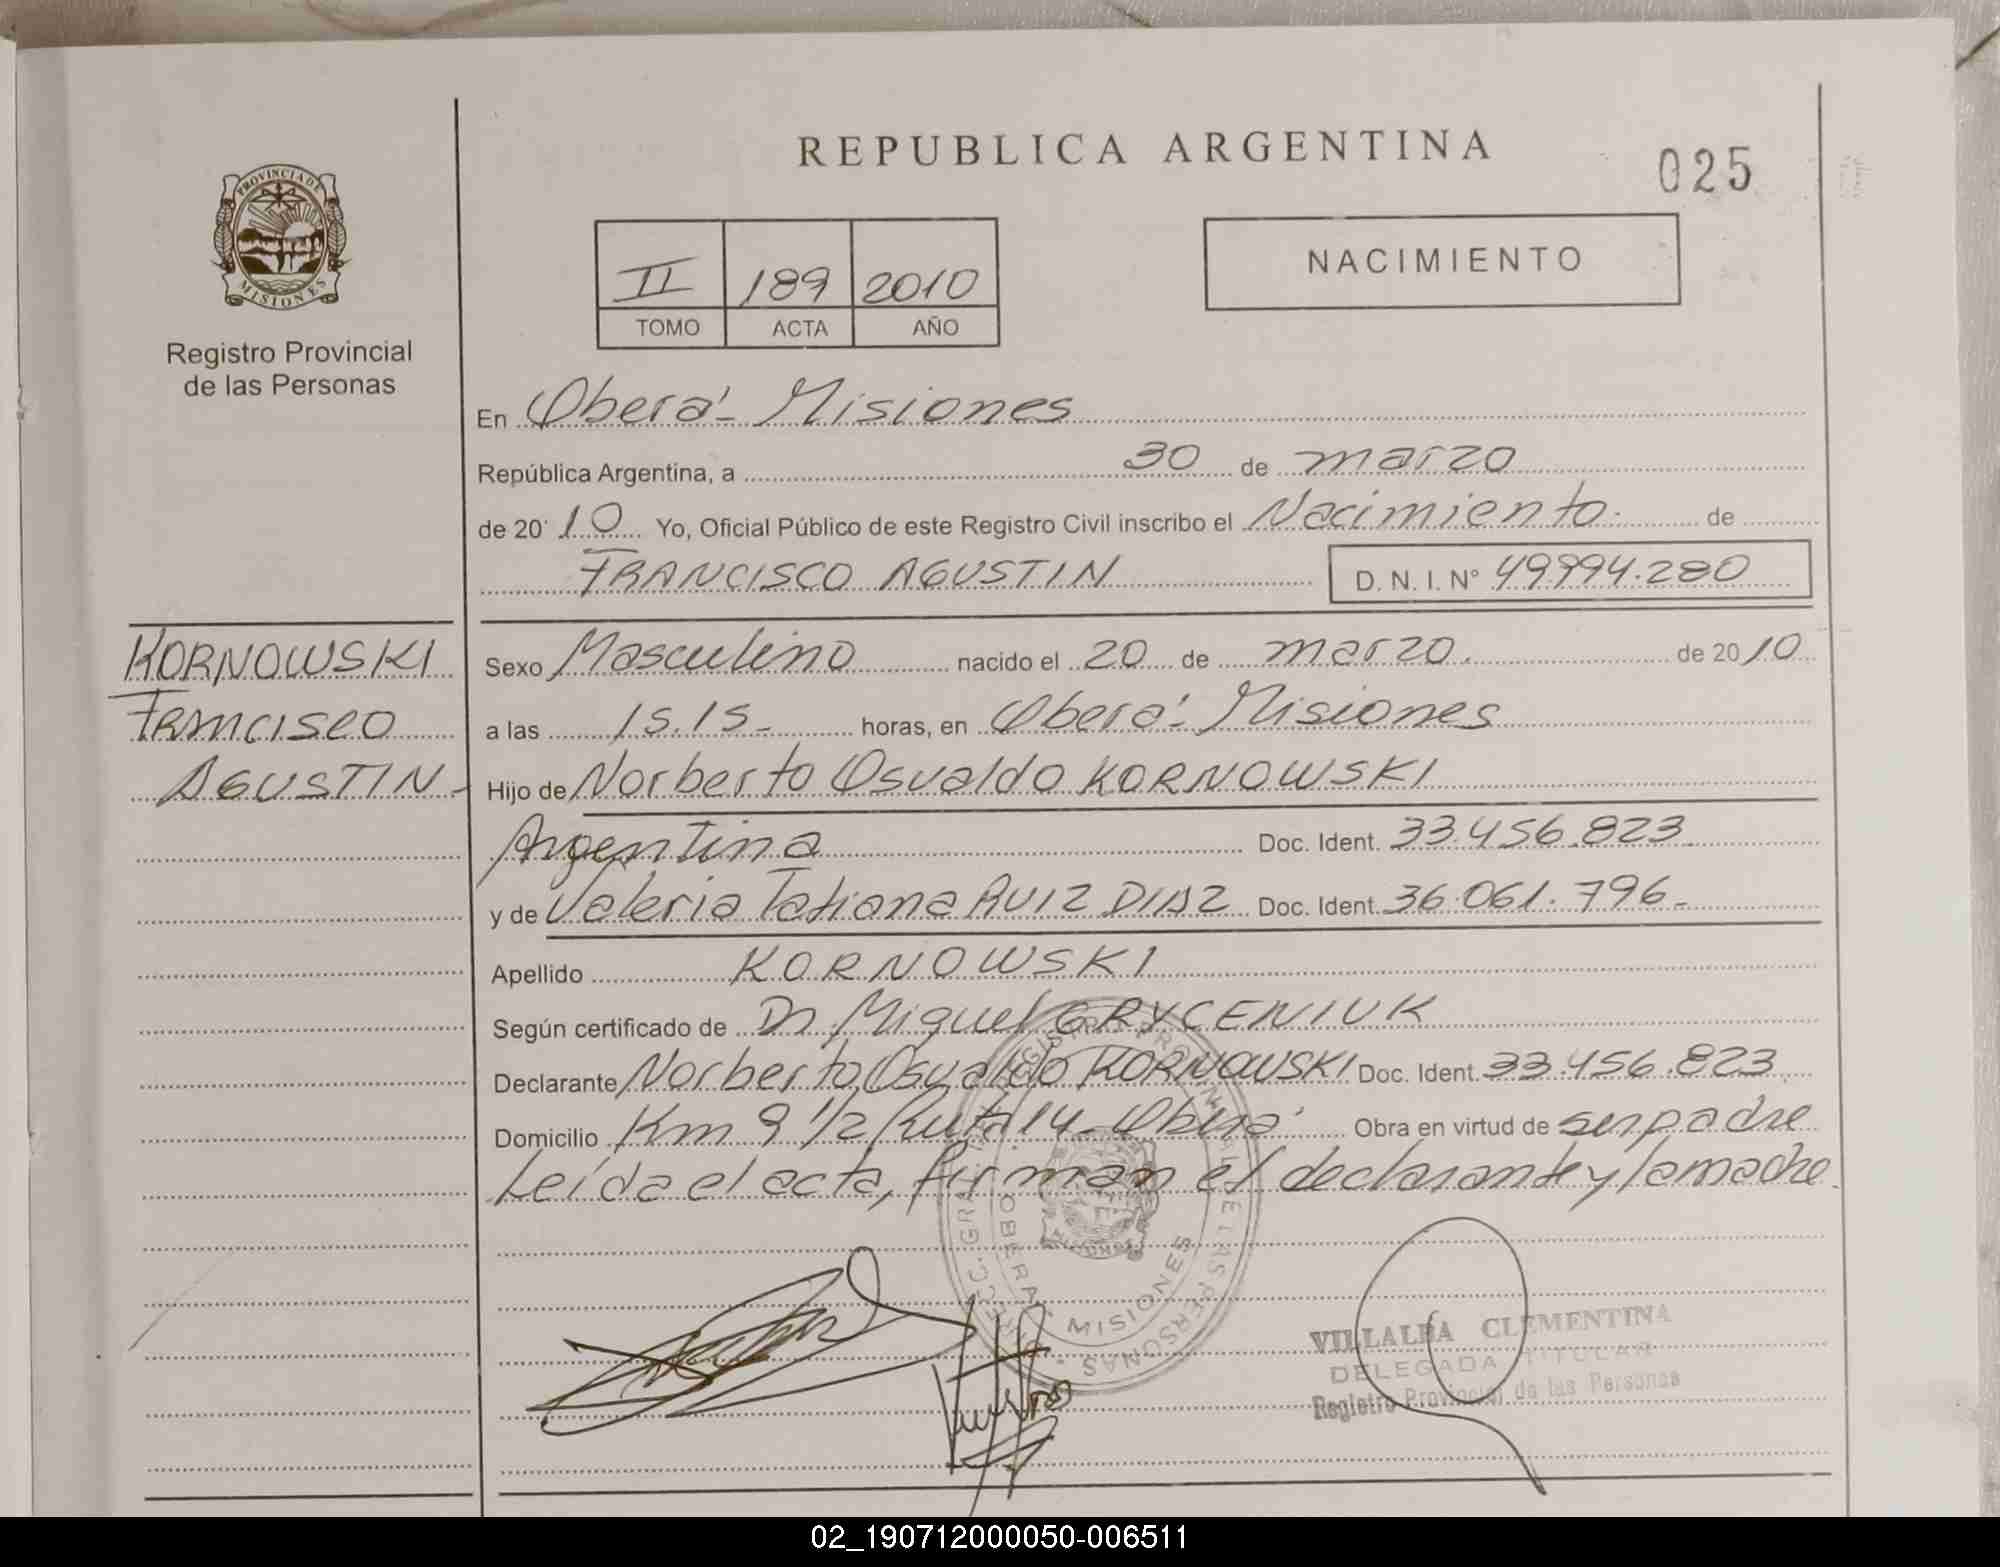 REPUBLICA ARGENTINA
025
PROVINCIA DE
MISIONES
Registro Provincial
de las Personas
II 189 2010
TOMO ACTA AÑO
NACIMIENTO
En Oberá - Misiones
República Argentina, a 30 de marzo
de 2010 Yo, Oficial Público de este Registro Civil inscribo el Nacimiento. de
FRANCISCO AGUSTIN D. N. I. Nº 49.994.280
KORNOWSKI
Francisco
AGUSTIN-
Sexo Masculino nacido el 20 de marzo. de 2010
a las 15.15- horas, en Oberá - Misiones
Hijo de Norberto Osvaldo KORNOWSKI
Argentina Doc. Ident. 33.456.823.
y de Valeria Tatiana RUIZ DIAZ Doc. Ident. 36.061.796.-
Apellido KORNOWSKI
Según certificado de Dr. Miguel GRYCENIUK
Declarante Norberto Osvaldo KORNOWSKI Doc. Ident. 33.456.823
Domicilio Km 9 1/2 Ruta 14 - Oberá Obra en virtud de ser padre
Leída el acta, firman el declarante y la madre.
OBERA MISIONES
VILLALBA CLEMENTINA
DELEGADA TITULAR
Registro Provincial de las Personas
02_190712000050-006511